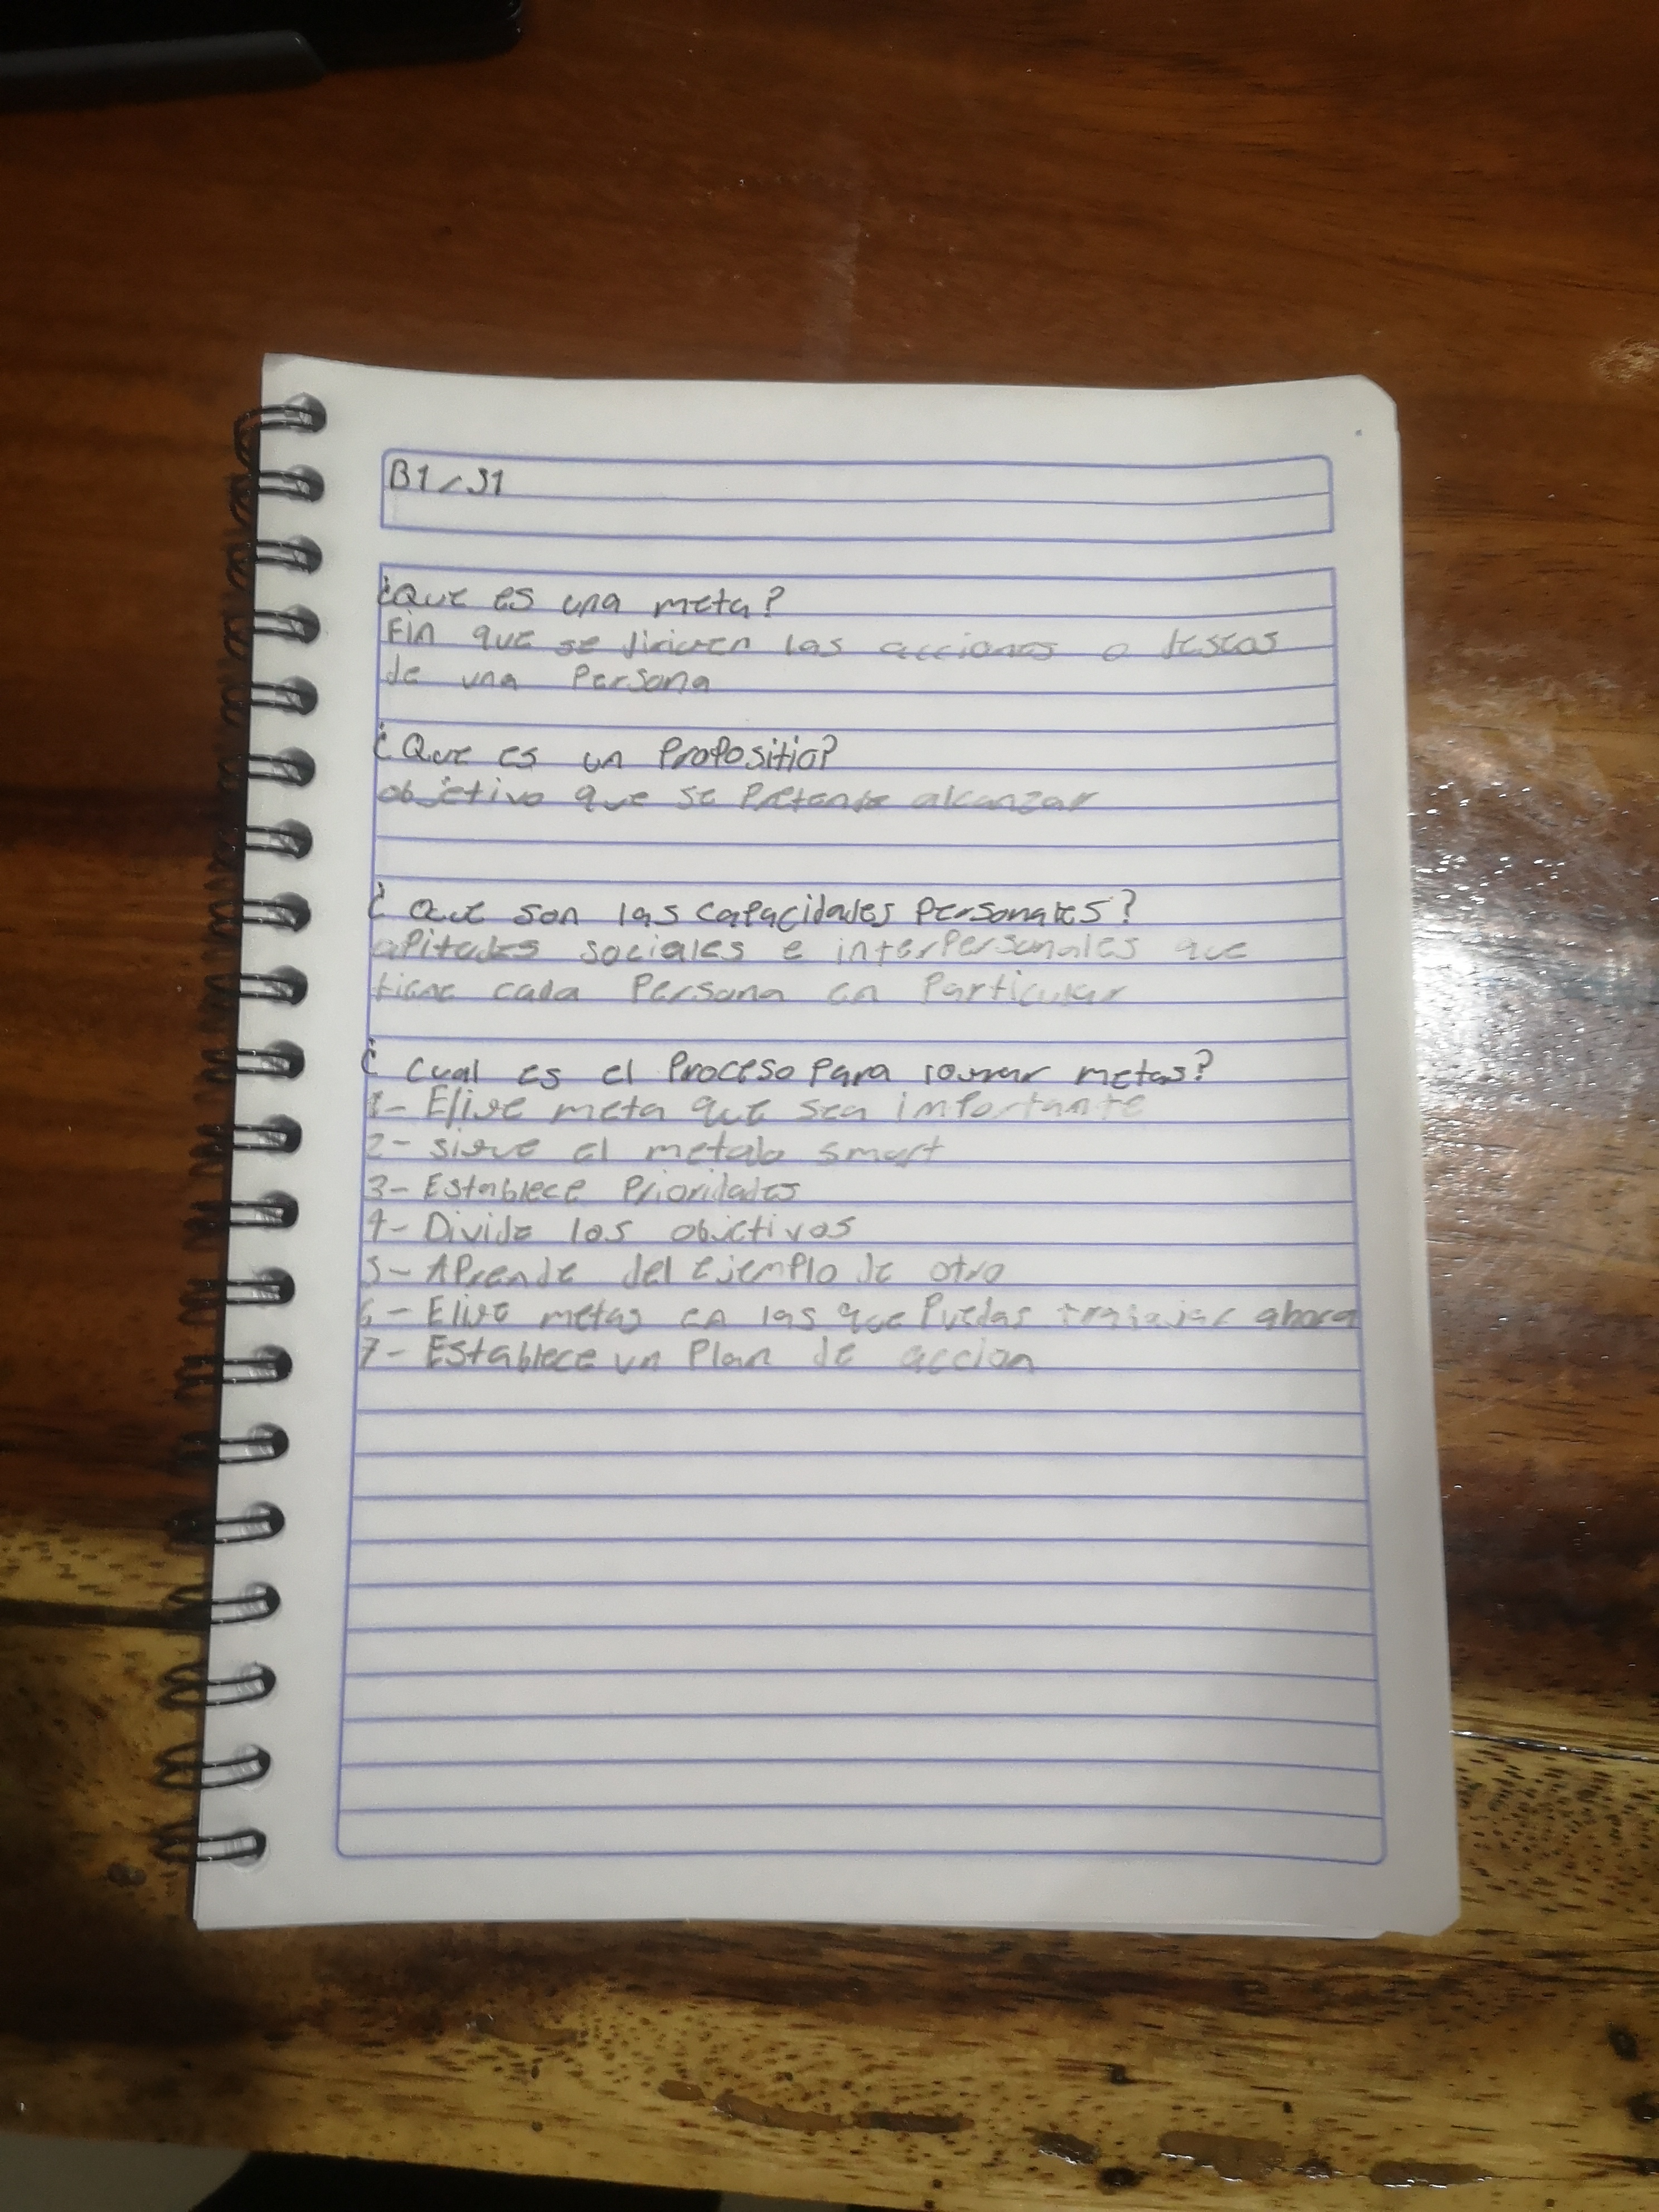 B1/S1
¿Que es una meta?
Fin que se dirigen las acciones o deseos
de una Persona
¿Que es un Propositio?
objetivo que se Pretende alcanzar
¿Que son las capacidades Personales?
apitudes sociales e interPersonales que
tiene cada Persona en Particular
¿Cual es el Proceso Para lograr metas?
1- Elige meta que sea importante
2- sigue el metodo smart
3- Establece Prioridades
4- Divide los objetivos
5- APrende del ejemplo de otro
6- Elige metas en las que Puedas trabajar ahora
7- Establece un Plan de accion